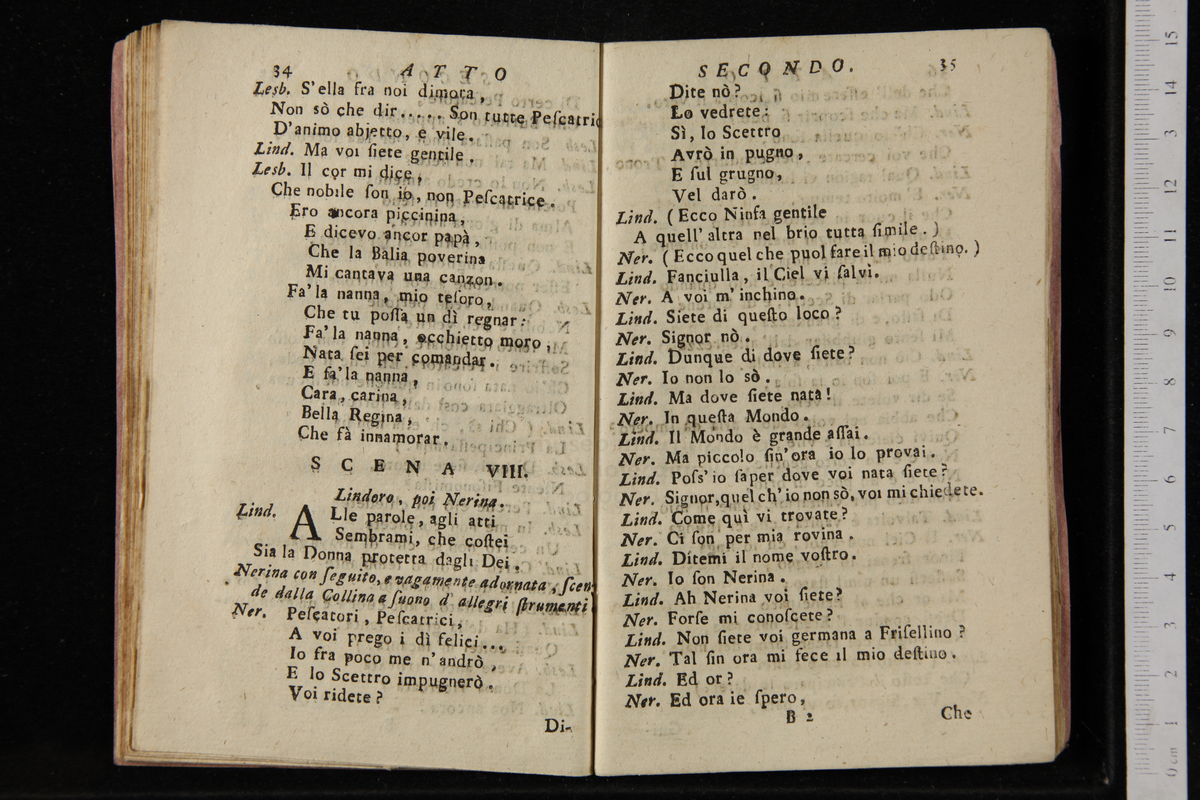 34 ATTO
Lesb. S'ella fra noi dimora,
Non sò che dir..... Son tutte Peſcatric
D'animo abjetto, e vile.
Lind. Ma voi ſiete gentile.
Lesb. Il cor mi dice,
Che nobile ſon io, non Peſcatrice.
Ero ancora piccinina,
E dicevo ancor papà,
Che la Balia poverina
Mi cantava una canzon.
Fa'la nanna, mio teſoro,
Che tu poſſa un dì regnar:
Fa'la nanna, occhietto moro,
Nata ſei per comandar.
E fa'la nanna,
Cara, carina,
Bella Regina,
Che fà innamorar.
SCENA VIII.
Lindoro, poi Nerina.
Lind. ALle parole, agli atti
Sembrami, che coſtei
Sia la Donna protetta dagli Dei.
Nerina con ſeguito, e vagamente adornata, ſcen
de dalla Collina a ſuono d' allegri ſtrumenti
Ner. Peſcatori, Peſcatrici,
A voi prego i dì felici...
Io fra poco me n'andrò,
E lo Scettro impugnerò.
Voi ridete?
Di-
SECONDO. 35
Dite nò?
Lo vedrete:
Sì, lo Scettro
Avrò in pugno,
E ſul grugno,
Vel darò.
Lind. (Ecco Ninfa gentile
A quell'altra nel brio tutta ſimile.)
Ner. (Ecco quel che puol fare il mio deſtino.)
Lind. Fanciulla, il Ciel vi ſalvi.
Ner. A voi m'inchino.
Lind. Siete di queſto loco?
Ner. Signor nò.
Lind. Dunque di dove ſiete?
Ner. Io non lo sò.
Lind. Ma dove ſiete nata!
Ner. In queſta Mondo.
Lind. Il Mondo è grande aſſai.
Ner. Ma piccolo ſin'ora io lo provai.
Lind. Poſs'io ſaper dove voi nata ſiete?
Ner. Signor, quel ch'io non sò, voi mi chiedete.
Lind. Come quì vi trovate?
Ner. Ci ſon per mia rovina.
Lind. Ditemi il nome voſtro.
Ner. Io ſon Nerina.
Lind. Ah Nerina voi ſiete?
Ner. Forſe mi conoſcete?
Lind. Non ſiete voi germana a Friſellino?
Ner. Tal ſin ora mi fece il mio deſtino.
Lind. Ed or?
Ner. Ed ora ie ſpero,
B 2 Che
0 cm 1 2 3 4 5 6 7 8 9 10 11 12 13 14 15